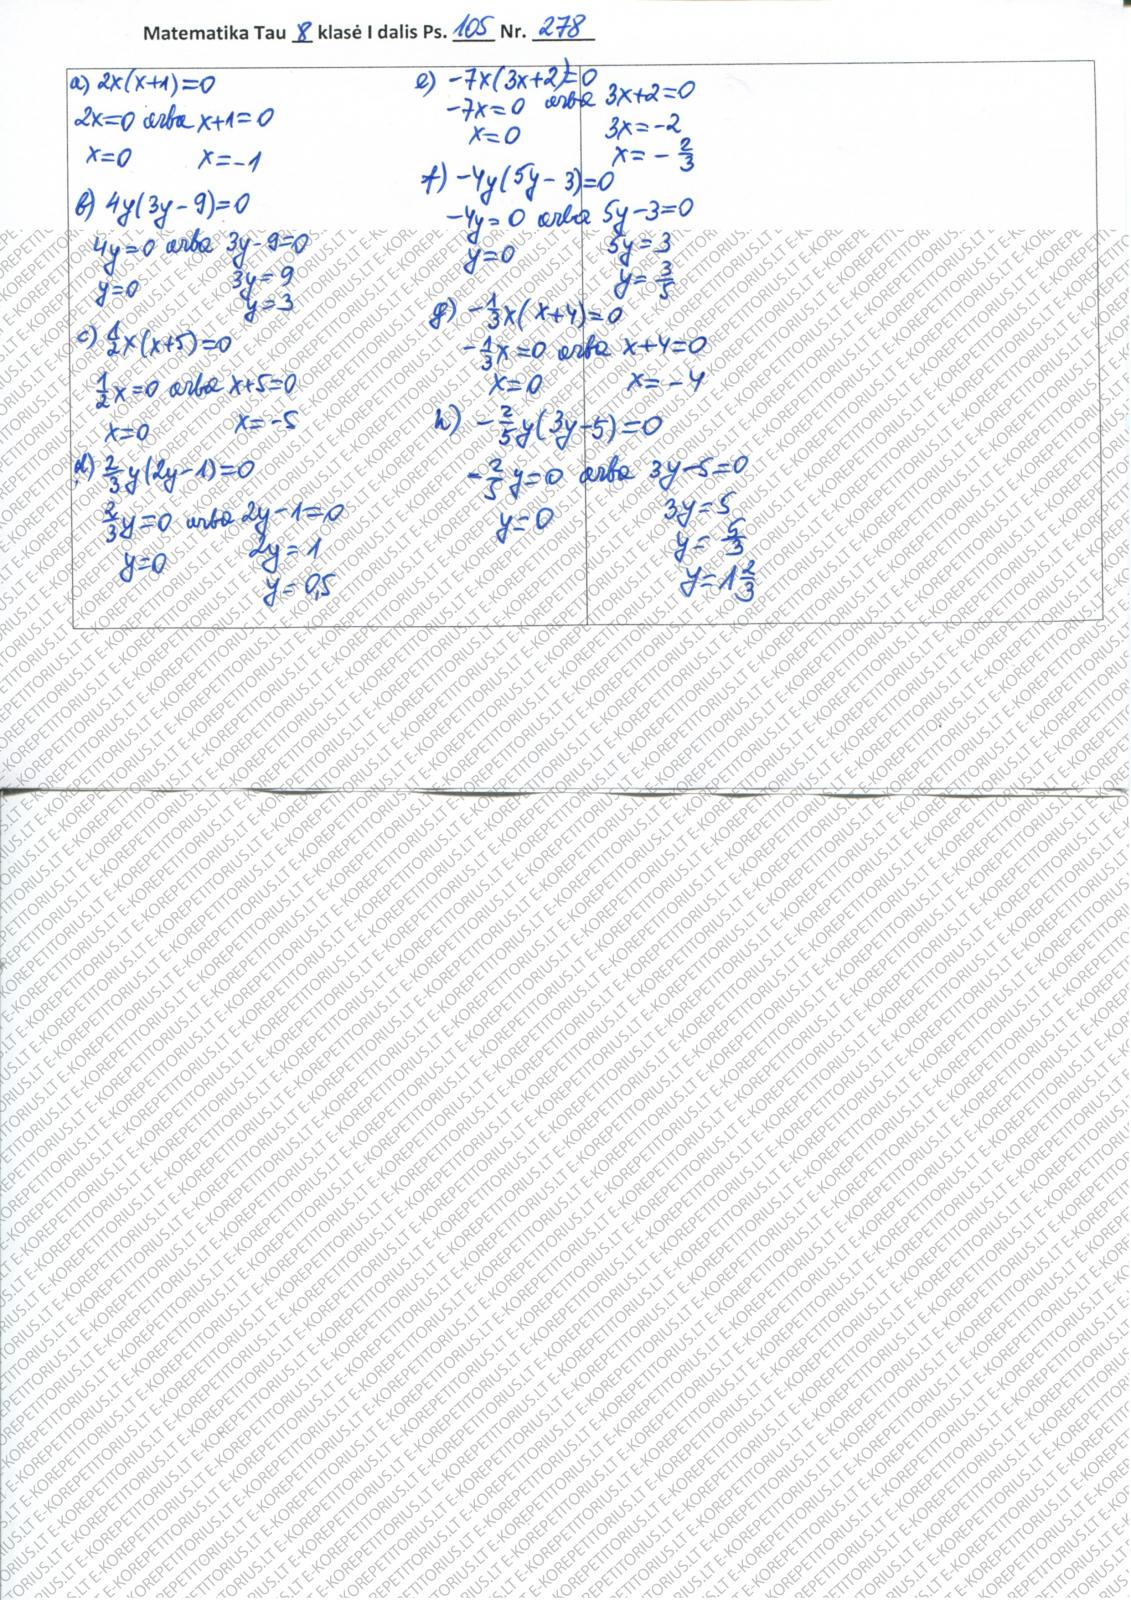 Matematika Tau 8 klasė I dalis Ps. 105 Nr. 278
a) 2x(x+1)=0
2x=0 arba x+1=0
x=0 x=-1
b) 4y(3y-9)=0
4y=0 arba 3y-9=0
y=0 3y=9
y=3
c) 1/2x(x+5)=0
1/2x=0 arba x+5=0
x=0 x=-5
d) 2/3y(2y-1)=0
2/3y=0 arba 2y-1=0
y=0 2y=1
y=0,5
e) -7x(3x+2)=0
-7x=0 arba 3x+2=0
x=0 3x=-2
x=-2/3
f) -4y(5y-3)=0
-4y=0 arba 5y-3=0
y=0 5y=3
y=3/5
g) -1/3x(x+4)=0
-1/3x=0 arba x+4=0
x=0 x=-4
h) -2/5y(3y-5)=0
-2/5y=0 arba 3y-5=0
y=0 3y=5
y=5/3
y=1 2/3
E-KOREPETITORIUS.LT